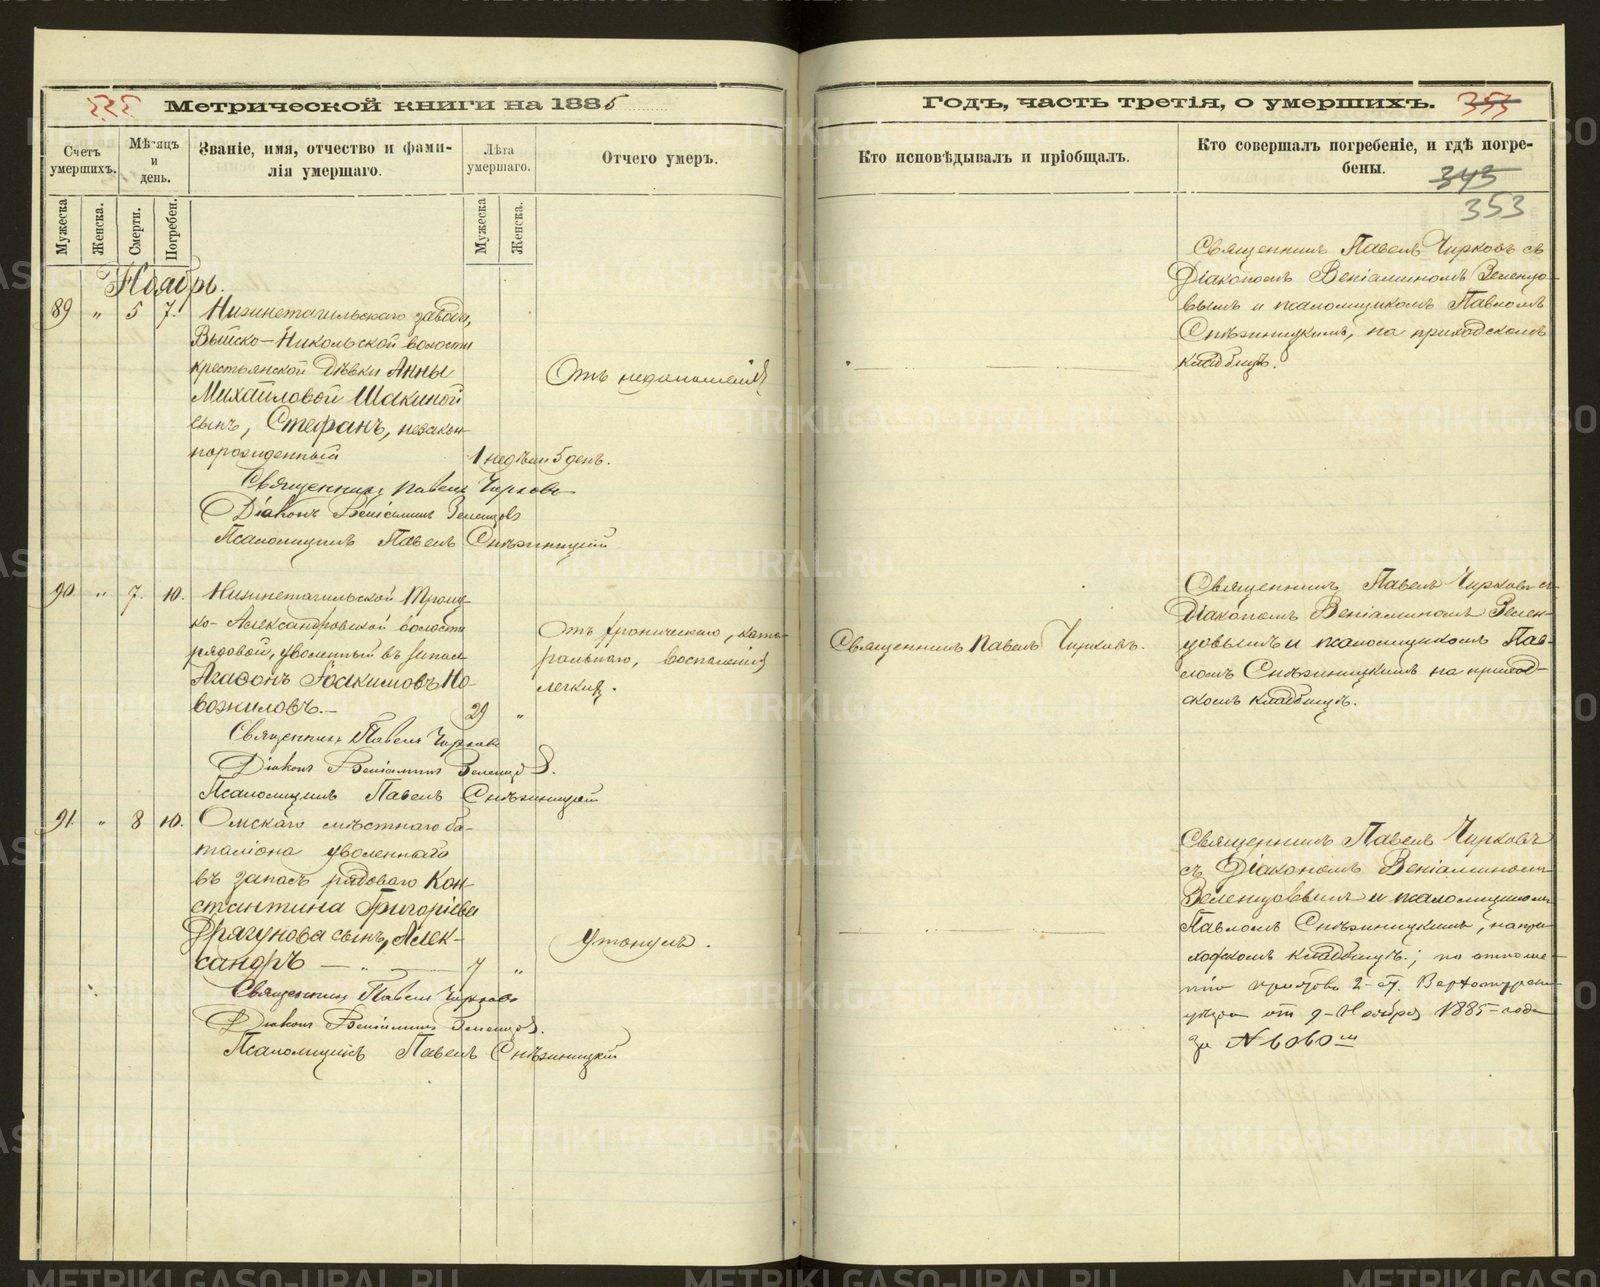 Метрической книги на 1885
Счетъ умершихъ.
Мѣсяцъ и день.
Званіе, имя, отчество и фами-
лія умершаго.
Лѣта умершаго.
Отчего умеръ.
Мужеска
Женска.
Смерти.
Погребен.
Мужеска
Женска.
Ноябрь.
89 " 5 7.
Нижнетагильскаго завода,
Выйско-Никольской волости
крестьянской дѣвки Анны
Михайловой Шакиной
сынъ, Стефанъ, незакон-
норожденный
1 недѣли 5 день.
Отъ недоношенія
Священникъ Павелъ Чирковъ
Діаконъ Веніаминъ Зеленцовъ
Псаломщикъ Павелъ Снѣжницкій
90 " 7. 10.
Нижнетагильской Троиц-
ко-Александровской волости
рядовой, уволенный въ запасъ
Агафонъ Іоакимовъ Но-
вожиловъ.-
29 "
Отъ хроническаго, ката-
ральнаго, воспаленія
легкихъ.
Священникъ Павелъ Чирковъ
Діаконъ Веніаминъ Зеленцовъ.
Псаломщикъ Павелъ Снѣжницкій
91. " 8 10.
Омскаго мѣстнаго ба-
таліона уволеннаго
въ запасъ рядоваго Кон-
стантина Григоріева
Дрягунова сынъ, Алек-
сандръ — " —
7 "
Утонулъ.
Священникъ Павелъ Чирковъ
Діаконъ Веніаминъ Зеленцовъ.
Псаломщикъ Павелъ Снѣжницкій
Годъ, часть третія, о умершихъ. 353
Кто исповѣдывалъ и пріобщалъ.
Кто совершалъ погребеніе, и гдѣ погре-
бены.
345
353
Священникъ Павелъ Чирковъ съ
Діакономъ Веніаминомъ Зеленцо-
вымъ и псаломщикомъ Павломъ
Снѣжницкимъ, на приходскомъ
кладбищѣ.
Священникъ Павелъ Чирковъ.
Священникъ Павелъ Чирковъ съ
Діакономъ Веніаминомъ Зелен-
цовымъ и псаломщикомъ Пав-
ломъ Снѣжницкимъ на приход-
скомъ кладбищѣ.
Священникъ Павелъ Чирковъ
съ Діакономъ Веніаминомъ
Зеленцовымъ и псаломщикомъ
Павломъ Снѣжницкимъ, на при-
ходскомъ кладбищѣ.; по отноше-
нію пристава 2-ст. Верхотурскаго
уѣзда от 9-Ноября 1885-года
за № 6060 ш
METRIKI.GASO-URAL.RU